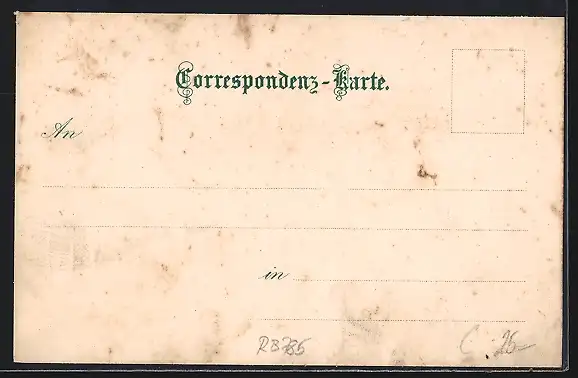 Correspondenz-Karte.
An
in
RB785
C. 25-